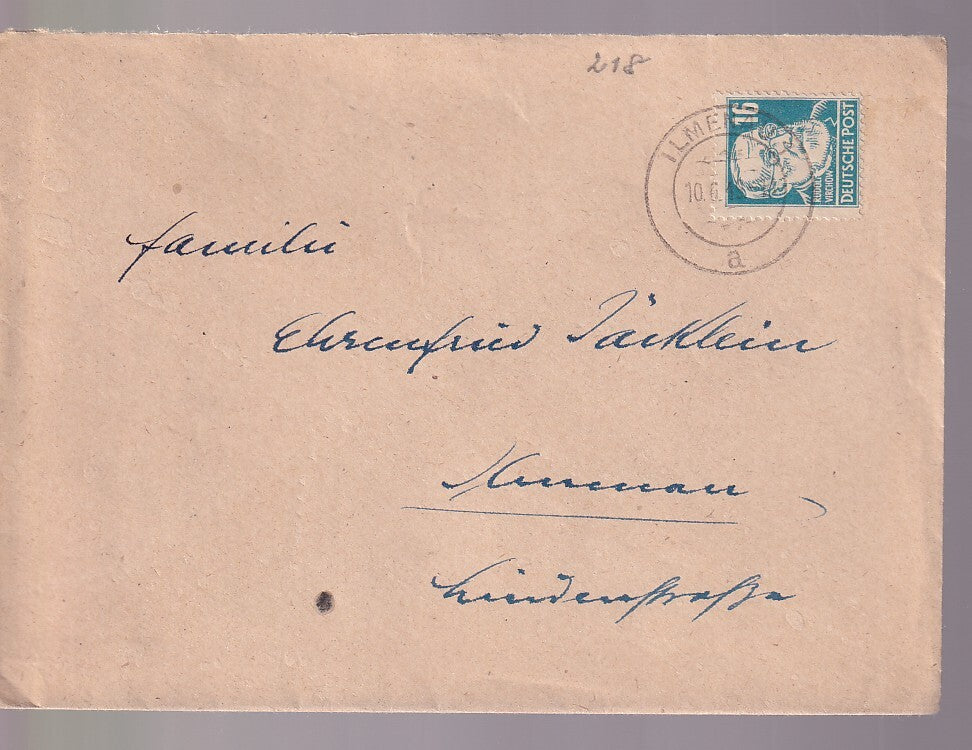 218
16
RUDOLF
VIRCHOW
DEUTSCHE POST
10.6.
a
Familie
Ehrenfried Jäcklein
Ilmenau
Lindenstraße